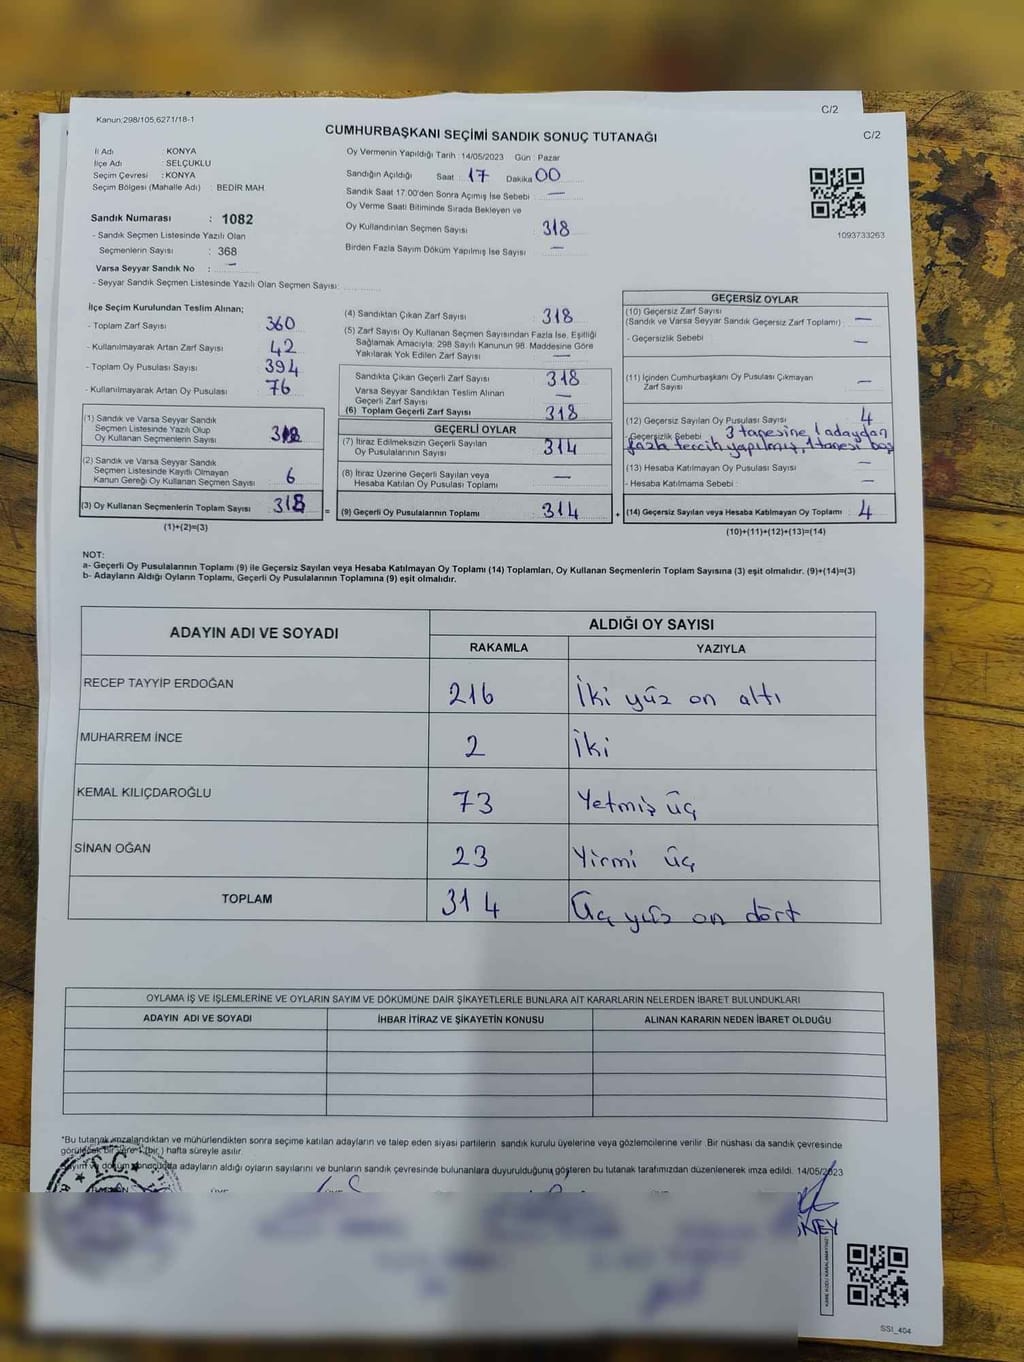 C/2
Kanun;298/105,6271/18-1
CUMHURBAŞKANI SEÇİMİ SANDIK SONUÇ TUTANAĞI
C/2
İl Adı : KONYA
İlçe Adı : SELÇUKLU
Seçim Çevresi : KONYA
Seçim Bölgesi (Mahalle Adı) : BEDİR MAH
Sandık Numarası : 1082
- Sandık Seçmen Listesinde Yazılı Olan
Seçmenlerin Sayısı : 368
Varsa Seyyar Sandık No : —
- Seyyar Sandık Seçmen Listesinde Yazılı Olan Seçmen Sayısı:
Oy Vermenin Yapıldığı Tarih : 14/05/2023 Gün : Pazar
Sandığın Açıldığı Saat : 17 Dakika 00
Sandık Saat 17:00'den Sonra Açılmış İse Sebebi —
Oy Verme Saati Bitiminde Sırada Bekleyen ve
Oy Kullandırılan Seçmen Sayısı 318
Birden Fazla Sayım Döküm Yapılmış İse Sayısı —
1093733263
İlçe Seçim Kurulundan Teslim Alınan;
- Toplam Zarf Sayısı 360
- Kullanılmayarak Artan Zarf Sayısı 42
- Toplam Oy Pusulası Sayısı 394
- Kullanılmayarak Artan Oy Pusulası 76
(1) Sandık ve Varsa Seyyar Sandık
Seçmen Listesinde Yazılı Olup
Oy Kullanan Seçmenlerin Sayısı
(2) Sandık ve Varsa Seyyar Sandık
Seçmen Listesinde Kayıtlı Olmayan
Kanun Gereği Oy Kullanan Seçmen Sayısı 6
(3) Oy Kullanan Seçmenlerin Toplam Sayısı 318
(1)+(2)=(3)
(4) Sandıktan Çıkan Zarf Sayısı 318
(5) Zarf Sayısı Oy Kullanan Seçmen Sayısından Fazla İse, Eşitliği
Sağlamak Amacıyla; 298 Sayılı Kanunun 98. Maddesine Göre
Yakılarak Yok Edilen Zarf Sayısı —
Sandıkta Çıkan Geçerli Zarf Sayısı 318
Varsa Seyyar Sandıktan Teslim Alınan
Geçerli Zarf Sayısı —
(6) Toplam Geçerli Zarf Sayısı 318
GEÇERLİ OYLAR
(7) İtiraz Edilmeksizin Geçerli Sayılan
Oy Pusulalarının Sayısı 314
(8) İtiraz Üzerine Geçerli Sayılan veya
Hesaba Katılan Oy Pusulası Toplamı —
= (9) Geçerli Oy Pusulalarının Toplamı 314
GEÇERSİZ OYLAR
(10) Geçersiz Zarf Sayısı
(Sandık ve Varsa Seyyar Sandık Geçersiz Zarf Toplamı) —
- Geçersizlik Sebebi —
(11) İçinden Cumhurbaşkanı Oy Pusulası Çıkmayan
Zarf Sayısı —
(12) Geçersiz Sayılan Oy Pusulası Sayısı 4
- Geçersizlik Sebebi 3 tanesine 1 adaydan
fazla tercih yapılmış, 1 tanesi boş
(13) Hesaba Katılmayan Oy Pusulası Sayısı —
- Hesaba Katılmama Sebebi : —
+ (14) Geçersiz Sayılan veya Hesaba Katılmayan Oy Toplamı 4
(10)+(11)+(12)+(13)=(14)
NOT:
a- Geçerli Oy Pusulalarının Toplamı (9) ile Geçersiz Sayılan veya Hesaba Katılmayan Oy Toplamı (14) Toplamları, Oy Kullanan Seçmenlerin Toplam Sayısına (3) eşit olmalıdır. (9)+(14)=(3)
b- Adayların Aldığı Oyların Toplamı, Geçerli Oy Pusulalarının Toplamına (9) eşit olmalıdır.
ADAYIN ADI VE SOYADI ALDIĞI OY SAYISI
RAKAMLA YAZIYLA
RECEP TAYYİP ERDOĞAN 216 İki yüz on altı
MUHARREM İNCE 2 İki
KEMAL KILIÇDAROĞLU 73 Yetmiş üç
SİNAN OĞAN 23 Yirmi üç
TOPLAM 314 Üç yüz on dört
OYLAMA İŞ VE İŞLEMLERİNE VE OYLARIN SAYIM VE DÖKÜMÜNE DAİR ŞİKAYETLERLE BUNLARA AİT KARARLARIN NELERDEN İBARET BULUNDUKLARI
ADAYIN ADI VE SOYADI İHBAR İTİRAZ VE ŞİKAYETİN KONUSU ALINAN KARARIN NEDEN İBARET OLDUĞU
*Bu tutanak imzalandıktan ve mühürlendikten sonra seçime katılan adayların ve talep eden siyasi partilerin sandık kurulu üyelerine veya gözlemcilerine verilir. Bir nüshası da sandık çevresinde
görülecek bir yere 1 (bir) hafta süreyle asılır.
adayların aldığı oyların sayılarını ve bunların sandık çevresinde bulunanlara duyurulduğunu gösteren bu tutanak tarafımızdan düzenlenerek imza edildi. 14/05/2023
T.C.
SSI_404